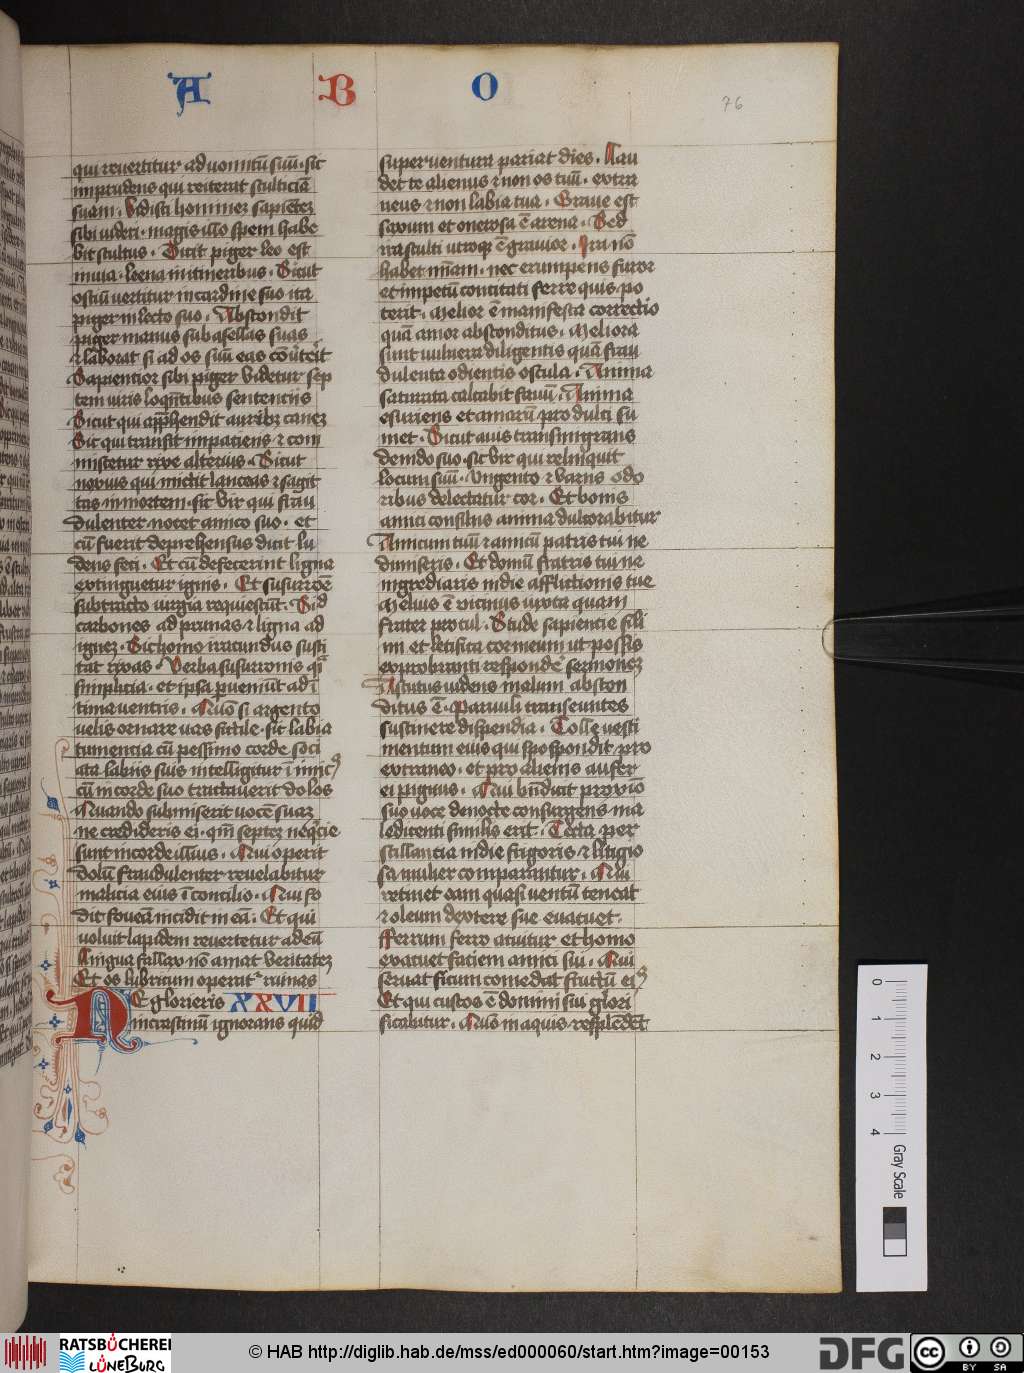 A B O
76
qui reuertitur ad uomitū suū · sic
imprudens qui reiterat stulticiā
suam . Vidisti hominez sapiētez
sibi uideri · magis illo spem habe
bit stultus . Dicit piger leo est
in uia · leena in itineribus . Sicut
ostiū uertitur in cardine suo ita
piger in lecto suo . Abscondit
piger manus sub ascellas suas
⁊ laborat si ad os suū eas cōuerteit
Sapientior sibi piger videtur sep
tem uiris loqn̄tibus sentencijs
Sicut qui app̄hendit auribz canez
Sic qui transit impatiens ⁊ com
miscetur rixe alterius . Sicut
noxius qui mictit lanceas ⁊ sagit
tas in mortem · sic vir qui frau
dulenter nocet amico suo . et
cū fuerit deprehensus dicit lu
dens feci . Et cū defecerint ligna
extinguetur ignis . Et susurrōe
subtracto iurgia requiescūt . Sic̄
carbones ad prunas ⁊ ligna ad
ignez . Sic homo iracundus susci
tat rixas . Verba susurronis qͣi
simplicia · et ipsa ꝑueniūt ad ī
tima uentris . Quō si argento
uelis ornare uas fictile · sic labia
tumencia cū pessimo corde soci
ata labiis suis intelligitur īimicꝰ
cū in corde suo tractauerit dolos
Quando submiserit uocē suaz
ne credideris ei · qm̄ septez neq̄cie
sunt in corde illius . Qui operit
dolū fraudulenter reuelabitur
malicia eius ī concilio . Qui fo
dit foueā incidit in eā . Et qui
uoluit lapidem reuertetur ad eū
Lingua fallax nō amat veritatez
Et os lubricum operat᷑ ruinas
NE glorieris XXVII
in crastinū ignorans quid
superuentura pariat dies . Lau
det te alienus ⁊ non os tuū . extra
neus ⁊ non labia tua . Graue est
saxum et onerosa ē arena . Sed
ira stulti utroqꝫ ē grauior . Ira nō
habet mīam · nec erumpens furor
et impetū concitati ferre quis po
terit . Melior ē manifesta correctio
quā amor absconditus . Meliora
sunt uulnera diligentis quā frau
dulenta odientis oscula . Anima
saturata calcabit fauū . Anima
esuriens et amarū pro dulci su
met . Sicut auis transmigrans
de nido suo · sic vir qui relinquit
locum suū . Ungento ⁊ variis odo
ribus delectatur cor . Et bonis
amici consiliis anima dulcorabitur
Amicum tuū ⁊ amicū patris tui ne
dimiseris . Et domū fratris tui ne
ingrediaris in die afflictionis tue
Melius ē vicinus iuxta quam
frater procul . Stude sapiencie fili
mi et letifica cor meum ut possis
exprobranti responde᷑ sermonez
Astutus uidens malum abscon
ditus ē . Paruuli transeuntes
sustinere dispendia . Tolle vesti
mentum eius qui spospondit pro
extraneo · et pro alienis aufer
ei pignus . Qui bn̄dicit proximō
suo uoce de nocte consurgens ma
ledicenti similis erit . Tecta per
stillancia in die frigoris ⁊ litigio
sa mulier comparantur . Qui
retinet eam quasi uentū teneat
⁊ oleum dextere sue euacuet .
Fferrum ferro acuitur et homo
exacuet faciem amici sui . Qui
seruat ficum comedat fructū eiꝰ
Et qui custos ē domini sui glori
ficabitur . Quō in aquis resplēdēt
0 1 2 3 4 Gray Scale
RATSBÜCHEREI LÜNEBURG
© HAB http://diglib.hab.de/mss/ed000060/start.htm?image=00153
DFG
cc BY SA